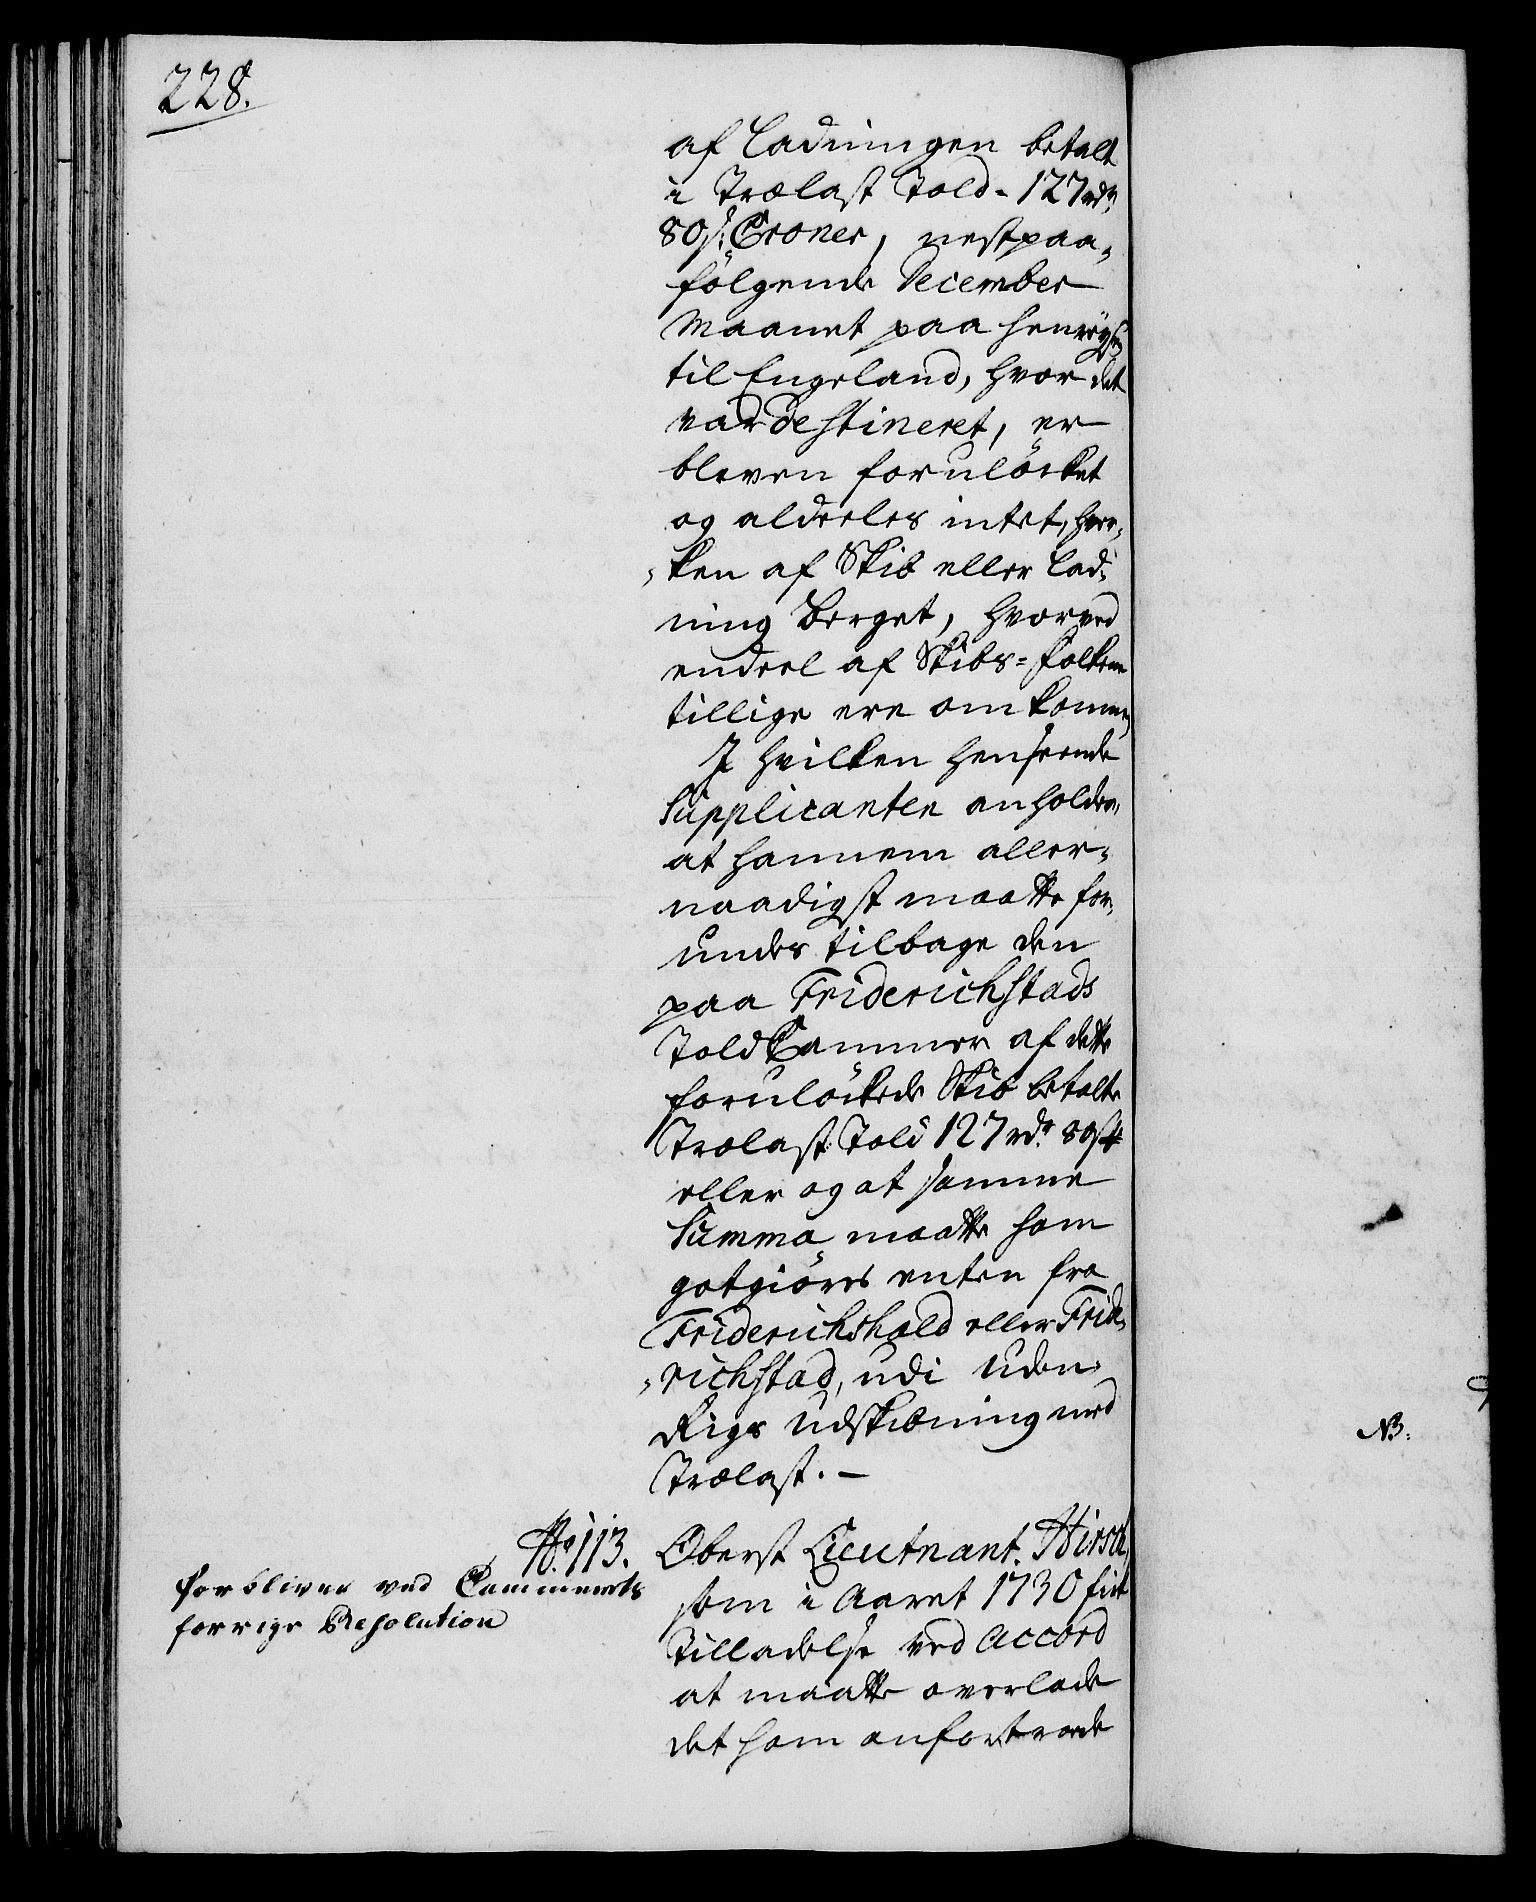 228.
af Ladningen betalt
i Trælast Told - 127 rdr
80 s: Croner, nestpaa-
følgende December
Maanet paa Henreysen
til Engeland, hvor det
var destineret, er
bleven forulöcket
og aldeeles intet, hver-
ken af Skib eller Lad-
ning berget, hvorved
endeel af Skibs-folkene
tillige ere omkommen
I hvilken henseende
Supplicanten anholder,
at hannem aller-
naadigst maatte for-
undes tilbage den
paa Friderichstads
Told Kammer af dette
forulöckede Skib betalte
Trælast Told 127 rdr 80 s
eller og at samme
Summa maatte ham
gotgiöres enten fra
Friderichshald eller Fride-
richstad, udi uden-
Rigs udskibning med
Trælast. -
No. 113.
forbliver ved Cammerets
forrige Resolution
Oberst Lieutnant Hirsch,
som i Aaret 1730 fik
Tilladelse ved Accord
at maatte overlade
det ham anfortroede
NB: